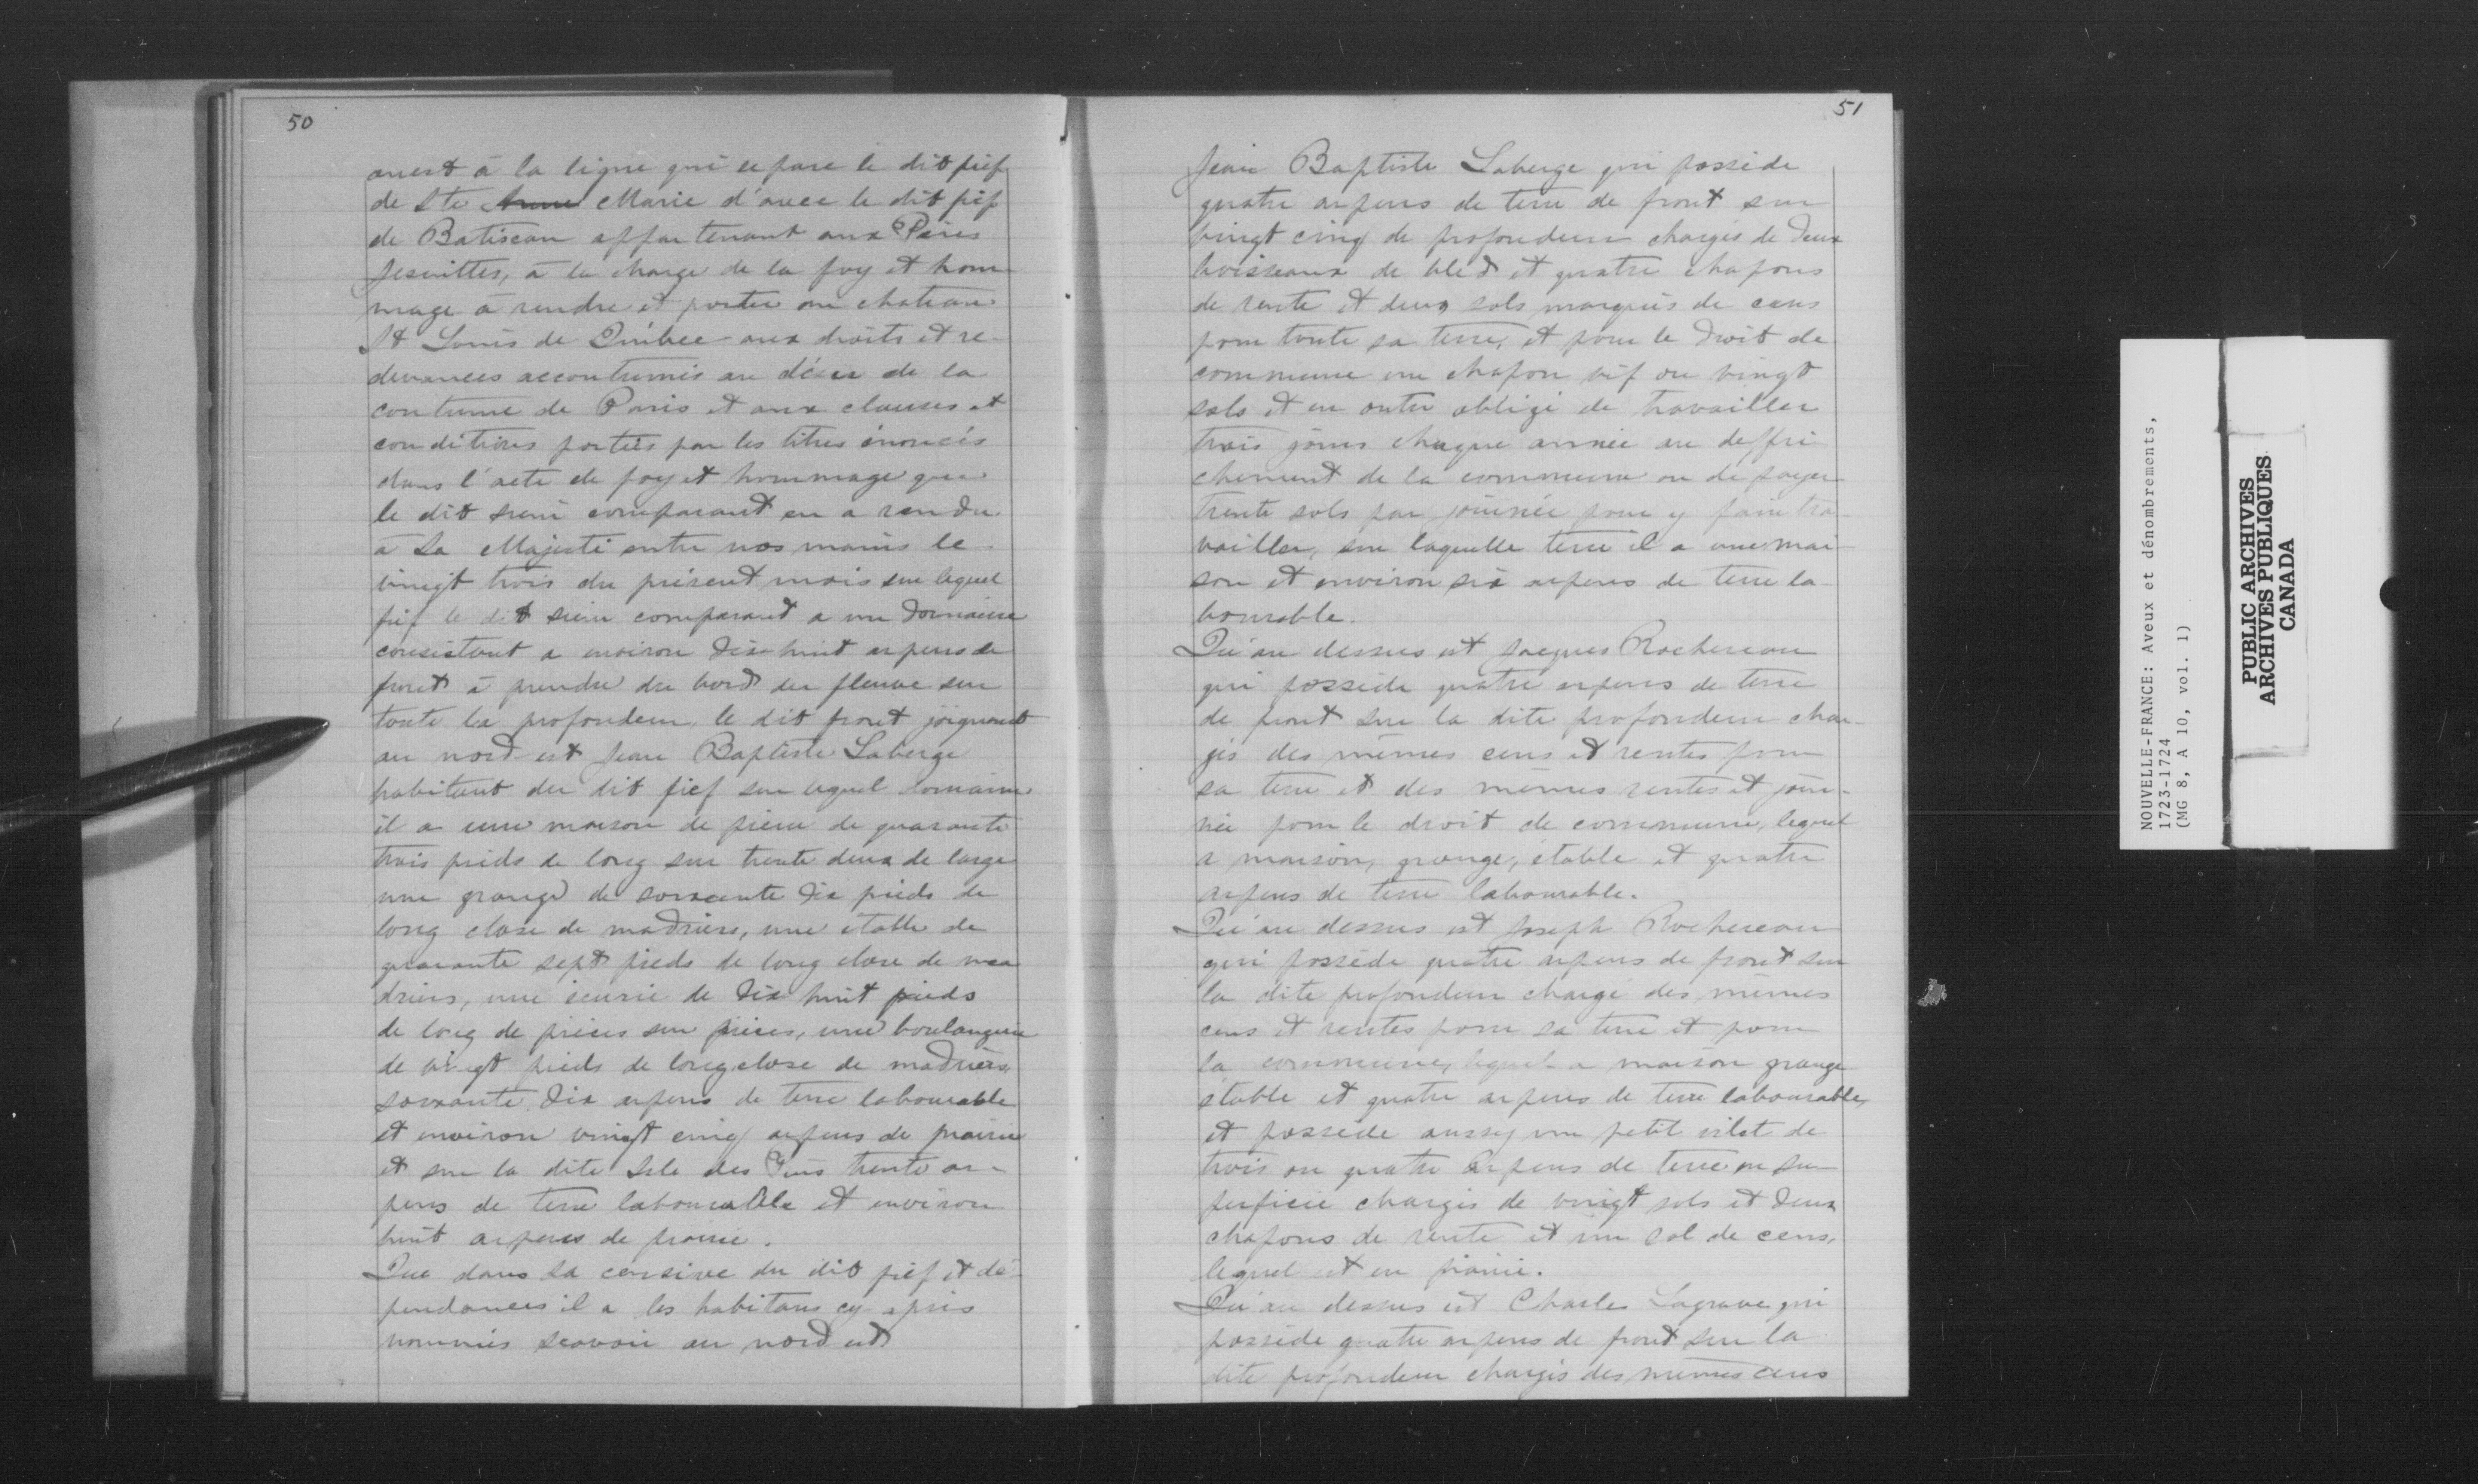 50
ouest à la ligne qui separe le dit fief
de Ste Anne Marie d'avec le dit fief
de Batiscan appartenant aux Pères
Jesuittes, à la charge de la foy et hom
mage à rendre et porter au chateau
St Louis de Québec aux droits et re-
devances accoutumés au désir de la
coutume de Paris et aux clauses et
conditions portées par les titres énoncés
dans l'acte de foy et hommage que
le dit sieur comparant en a rendu
à Sa Majesté entre nos mains le
vingt trois du présent mois sur lequel
fief le dit sieur comparant a un domaine
consistant a environ dix-huit arpens de
front à prendre du bord du fleuve sur
toute la profondeur, le dit front joignant
au nord-est Jean Baptiste Laberge
habitant du dit fief sur lequel domaine
il a une maison de pierre de quarante
trois pieds de long sur trente deux de large
une grange de soixante dix pieds de
long close de madriers, une étable de
quarante sept pieds de long close de ma
driers, une écurie de dix huit pieds
de long de pièces sur pièces, une boulangerie
de vingt pieds de long close de madriers,
soixante dix arpens de terre labourable
et environ vingt cinq arpens de prairie
et sur la dite Isle des Pins trente ar-
pens de terre labourable et environ
huit arpens de prairie.
Que dans la censive du dit fief et dé-
pendances il a les habitans cy après
nommés scavoir au nord est
51
Jean Baptiste Laberge qui possède
quatre arpens de terre de front sur
vingt cinq de profondeur chargés de deux
boisseaux de bled et quatre chapons
de rente et deux sols marqués de cens
pour toute sa terre, et pour le droit de
commune un chapon vif ou vingt
sols et en outre obligé de travailler
trois jours chaque année au deffri-
chement de la commune ou de payer
trente sols par journée pour y faire tra-
vailler, sur laquelle terre il a une mai-
son et environ six arpens de terre la-
bourable.
Qu'au dessus est Jacques Rochereau
qui possède quatre arpens de terre
de front sur la dite profondeur char-
gés des mêmes cens et rentes pour
sa terre et des mêmes rentes et jour-
née pour le droit de commune, lequel
a maison, grange, étable et quatre
arpens de terre labourable.
Qu'au dessus est Joseph Rochereau
qui possède quatre arpens de front sur
la dite profondeur chargé des mêmes
cens et rentes pour sa terre et pour
la commune, lequel a maison grange
étable et quatre arpens de terre labourable,
et possède aussy un petit islet de
trois ou quatre arpens de terre en su-
perficie chargés de vingt sols et deux
chapons de rente et un sol de cens,
lequel est en prairie.
Qu'au dessus est Charles Lagrave qui
possède quatre arpens de front sur la
dite profondeur chargés des mêmes cens
NOUVELLE-FRANCE: Aveux et dénombrements,
1723-1724
(MG 8, A 10, vol. 1)
PUBLIC ARCHIVES
ARCHIVES PUBLIQUES
CANADA